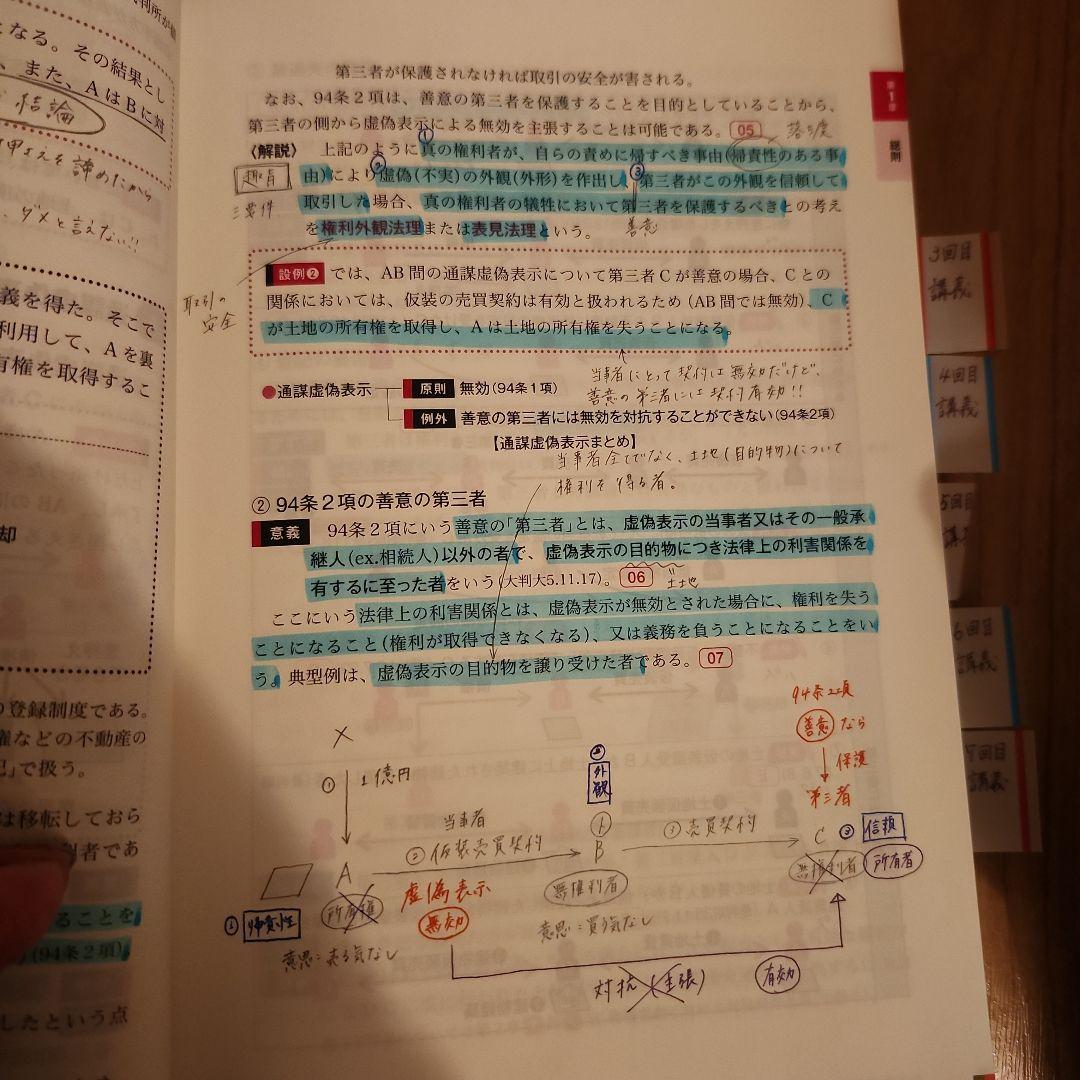 となる。その結果とし
、また、AはBに対
結論
を諦めたから
、ダメと言えない!!
義を得た。そこで
利用して、Aを裏
有権を取得するこ
却
登録制度である。
権などの不動産の
」で扱う。
は移転しておら
利者であ
ることを
(94条2項)
したという点
第三者が保護されなければ取引の安全が害される。
なお、94条2項は、善意の第三者を保護することを目的としていることから、
第三者の側から虚偽表示による無効を主張することは可能である。 05 落ち度
〈解説〉 上記のように①真の権利者が、自らの責めに帰すべき事由(帰責性のある事
趣旨
由)により②虚偽(不実)の外観(外形)を作出し、③第三者がこの外観を信頼して
三要件
取引した場合、真の権利者の犠牲において第三者を保護するべきとの考え
を権利外観法理または表見法理という。
善意
取引の
安全
設例❷ では、AB間の通謀虚偽表示について第三者Cが善意の場合、Cとの
関係においては、仮装の売買契約は有効と扱われるため(AB間では無効)、C
が土地の所有権を取得し、Aは土地の所有権を失うことになる。
当事者にとって契約は無効だけど、
善意の第三者には契約有効!!
●通謀虚偽表示
原則 無効(94条1項)
例外 善意の第三者には無効を対抗することができない(94条2項)
【通謀虚偽表示まとめ】
当事者全てでなく、土地(目的物)について
権利を得る者。
② 94条2項の善意の第三者
意義 94条2項にいう善意の「第三者」とは、虚偽表示の当事者又はその一般承
継人(ex.相続人)以外の者で、虚偽表示の目的物につき法律上の利害関係を
有するに至った者をいう(大判大5.11.17)。 06
〃土地
ここにいう法律上の利害関係とは、虚偽表示が無効とされた場合に、権利を失う
ことになること(権利が取得できなくなる)、又は義務を負うことになることをい
う。典型例は、虚偽表示の目的物を譲り受けた者である。 07
94条2項
善意なら
保護
第三者
×
① 1億円
② 外観
当事者
② 仮装売買契約
③ 売買契約
A
B
C
③ 信頼
所有権
虚偽表示
無権利者
無権利者
所有者
① 帰責性
無効
意思:売る気なし
意思:買う気なし
対抗(主張)
有効
第1章
総則
3回目
講義
4回目
講義
5回目
講義
6回目
講義
7回目
講義